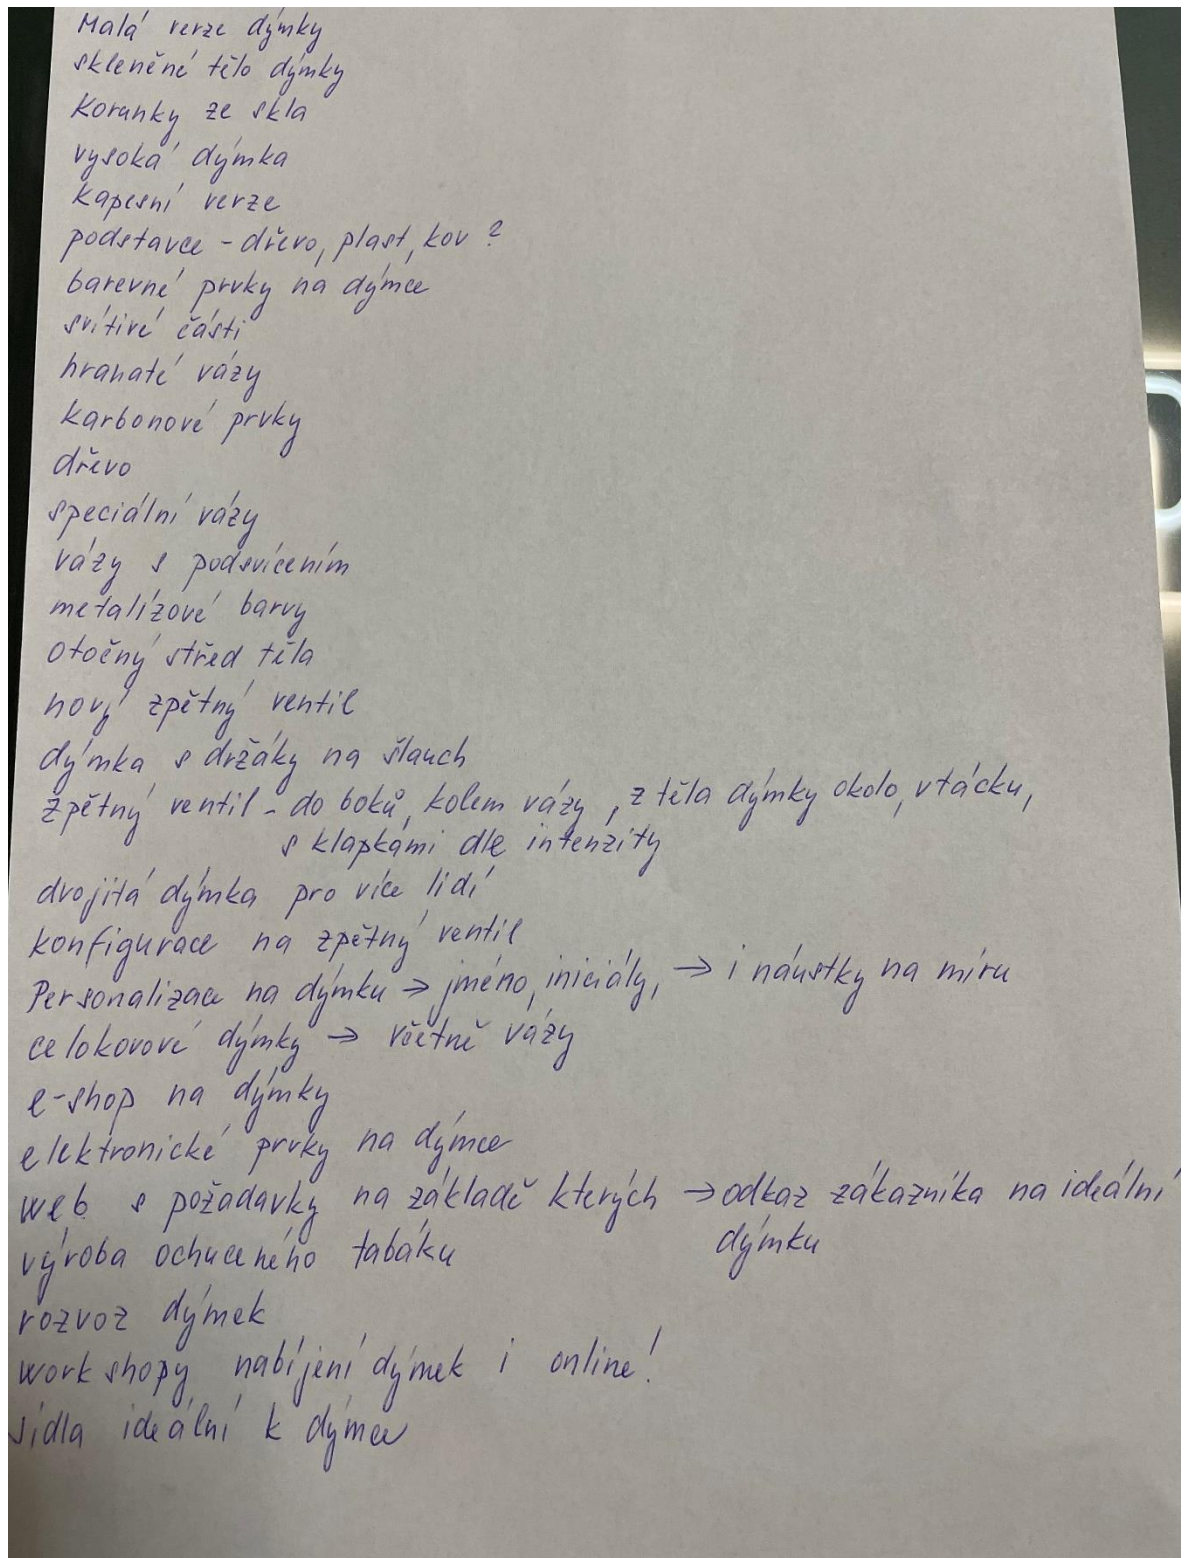 Malá verze dýmky
skleněné tělo dýmky
Korunky ze skla
vysoká dýmka
kapesní verze
podstavce - dřevo, plast, kov ?
barevné prvky na dýmce
svítivé části
hranaté vázy
karbonové prvky
dřevo
speciální vázy
vázy s podsvícením
metalízové barvy
otočný střed těla
nový zpětný ventil
dýmka s držáky na šlauch
zpětný ventil - do boků, kolem vázy, z těla dýmky okolo, v tácku,
s klapkami dle intenzity
dvojitá dýmka pro více lidí
konfigurace na zpětný ventil
Personalizace na dýmku → jméno, iniciály, → i náustky na míru
celokovové dýmky → včetně vázy
e-shop na dýmky
elektronické prvky na dýmce
web s požadavky na základě kterých → odkaz zákazníka na ideální
dýmku
výroba ochuceného tabáku
rozvoz dýmek
workshopy nabíjení dýmek i online!
sídla ideální k dýmce